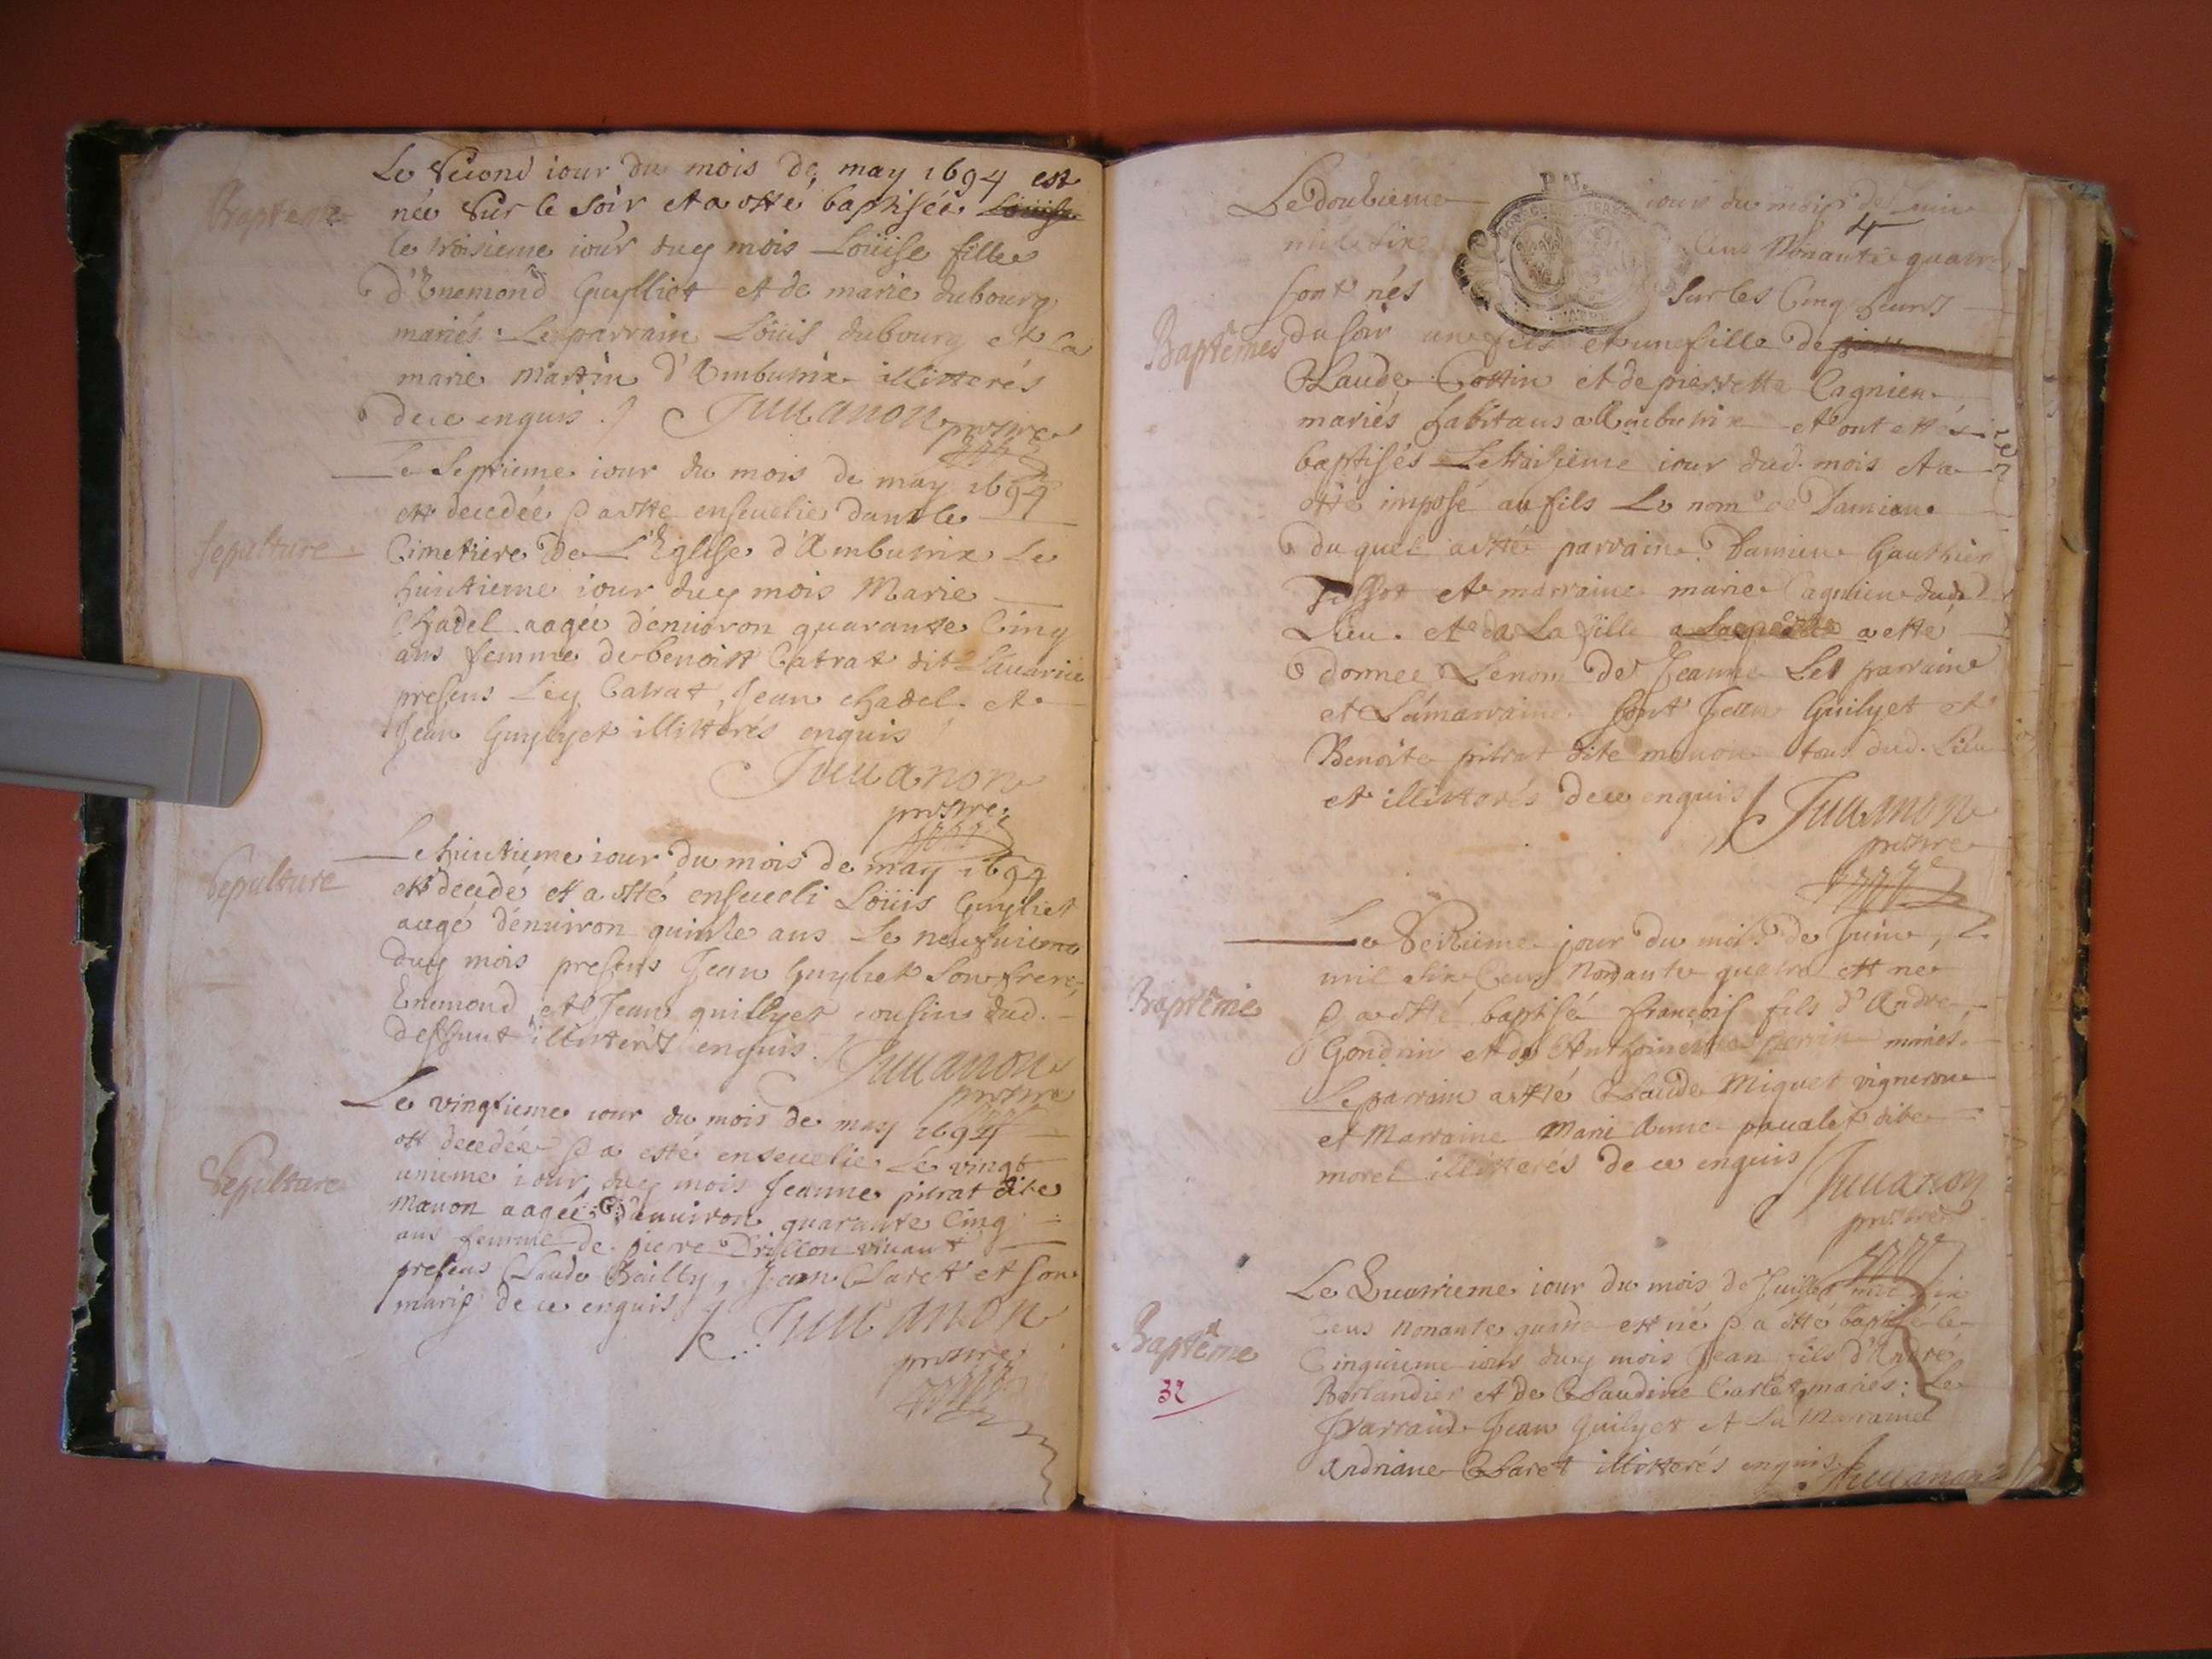 Baptesme
Le Second iour du mois de may 1694 est
née Sur le Soir et a esté baptisée Loüise
le troisieme iour duy mois Loüise fille
d'Enemond Guylliet et de marie dubourg
mariés. Le parrain Loüis dubourg et la
marie Martin d'Ambutrix illitterés
de ce enquis. Juuanon
prestre
Sepulture
Le Septieme iour du mois de may 1694
est decedée & a esté enseuelie dans le
Cimetiere De L'Eglise d'Ambutrix Le
huictieme iour duy mois Marie
Chadel aagée d'enuiron quarante Cinq
ans femme de benoist Catrat dit
presens Ley Catrat, Jean chadel et
Jean Guylyet illitterés enquis
Juuanon
prestre
Sepulture
Le huictieme iour du mois de may 1694
est decedé et a esté enseueli Loüis Guyliet
aagé d'enuiron quinze ans Le neufuieme
duy mois presens Jean Guyliet Son frere,
Enemond et Jean guillyet cousins dud.
deffunt illiterés enquis. Juuanon
prestre
Sepulture
Le vingtieme iour du mois de may 1694
est decedée & a esté enseuelie Le vingt
unieme iour duy mois Jeanne pitrat dite
Manon aagée d'enuiron quarante Cinq
ans femme de pierre viuant
presens Claude Bailly, Jean Claret et son
mary de ce enquis Juuanon
prestre
Le douzieme iour du mois de Juin
mil Six Cens Nonante quatre
sont nés Sur les Cinq heures
Baptêmes
du soir un fils et une fille de
Claude Cottin et de pierrette Cagnien
mariés habitans a Ambutrix et ont estés
baptisés Le traizieme iour dud. mois et a
esté imposé au fils Le nom de Damien
du quel a esté parrain Damien Gauthier
et marraine marie Cagnien dud
Lieu. et a La fille a esté
donnee Le nom de Jeanne Les parrain
et La marraine sont Jean Guilyet et
Benoite pitrat dite manon tous dud. Lieu
et illitterés de ce enquis Juuanon
prestre
Baptême
Le Seizieme jour du mois de Juin
mil Six Cens Nonante quatre est né
& a esté baptisé françois fils d'André
Gondrin et de Anthoinette perrin mariés.
Le parrain a esté Claude Miguet vigneron
et Marraine Marie Anne paualet dite
morel illitterés de ce enquis Juuanon
prestre
Baptême
32
Le Quatrieme iour du mois de Juillet mil Six
Cens Nonante quatre est né & a esté baptisé le
Cinquieme iour duy mois Jean fils d'André
Borlandier et de Claudine Carlet mariés: Le
Parrain Jean Guilyet et La Marraine
Andriane Claret illitterés enquis. Juuanon